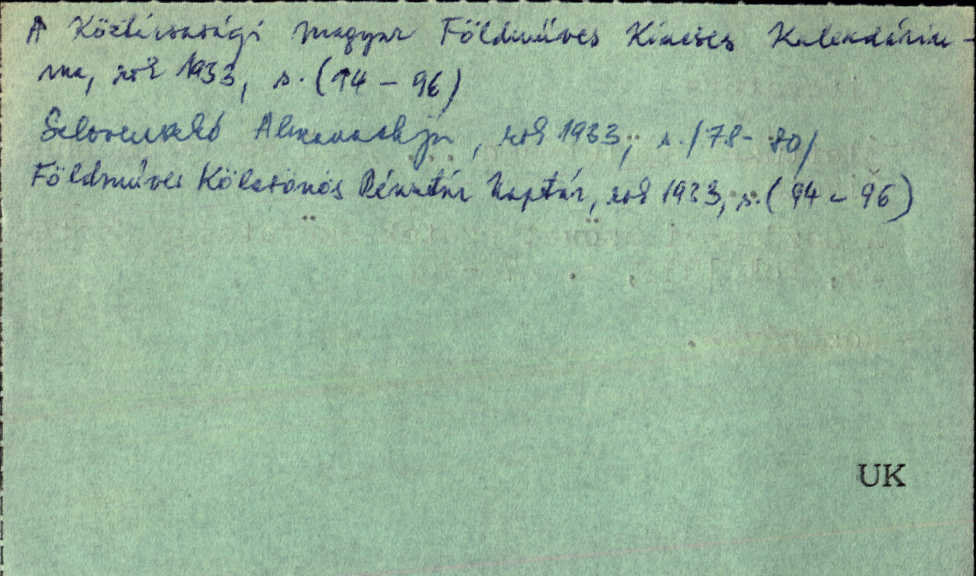 A Köztársasági Magyar Földműves Kincses Kalendáriu-
ma, rok 1933, s. (94 - 96)
Slovenskó Almanachja, rok 1933, s. (78 - 80)
Földműves Kölcsönös Pénztár Naptár, rok 1933, s. (94 - 96)
UK